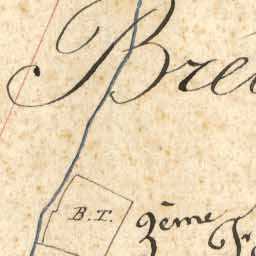 Bré
B.T.
2ème